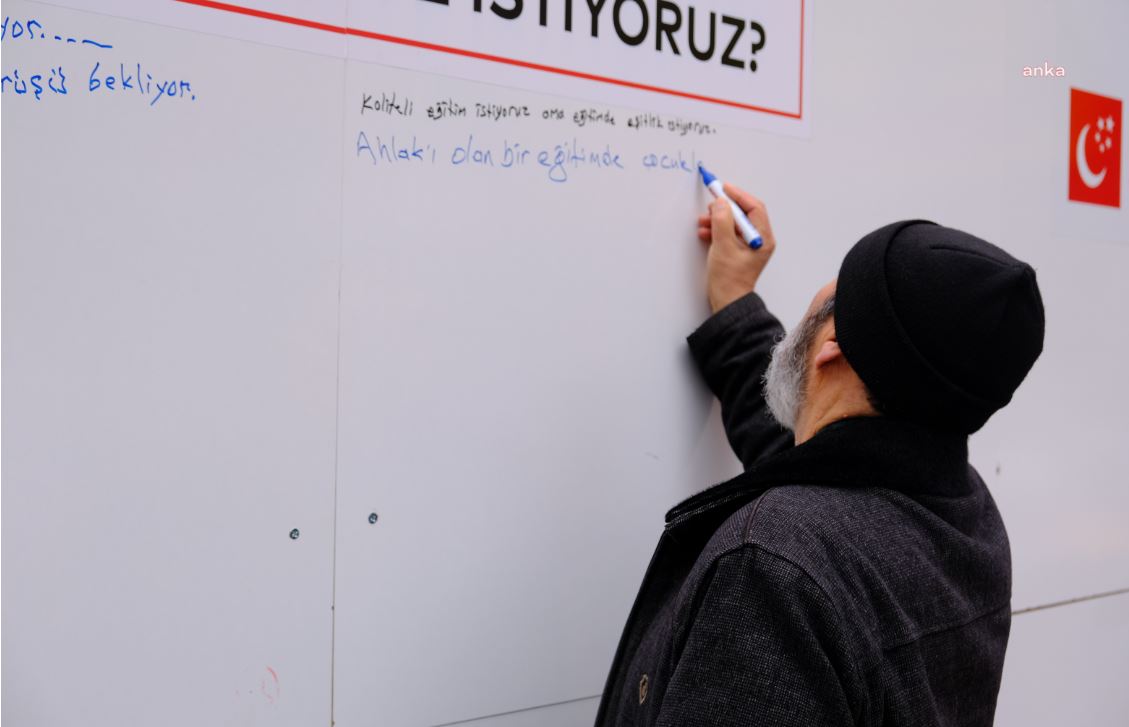 İSTİYORUZ?
anka
yor.....
rüşü bekliyor.
Kaliteli eğitim istiyoruz ama eğitimde eşitlik istiyoruz.
Ahlak'ı olan bir eğitimde çocukla